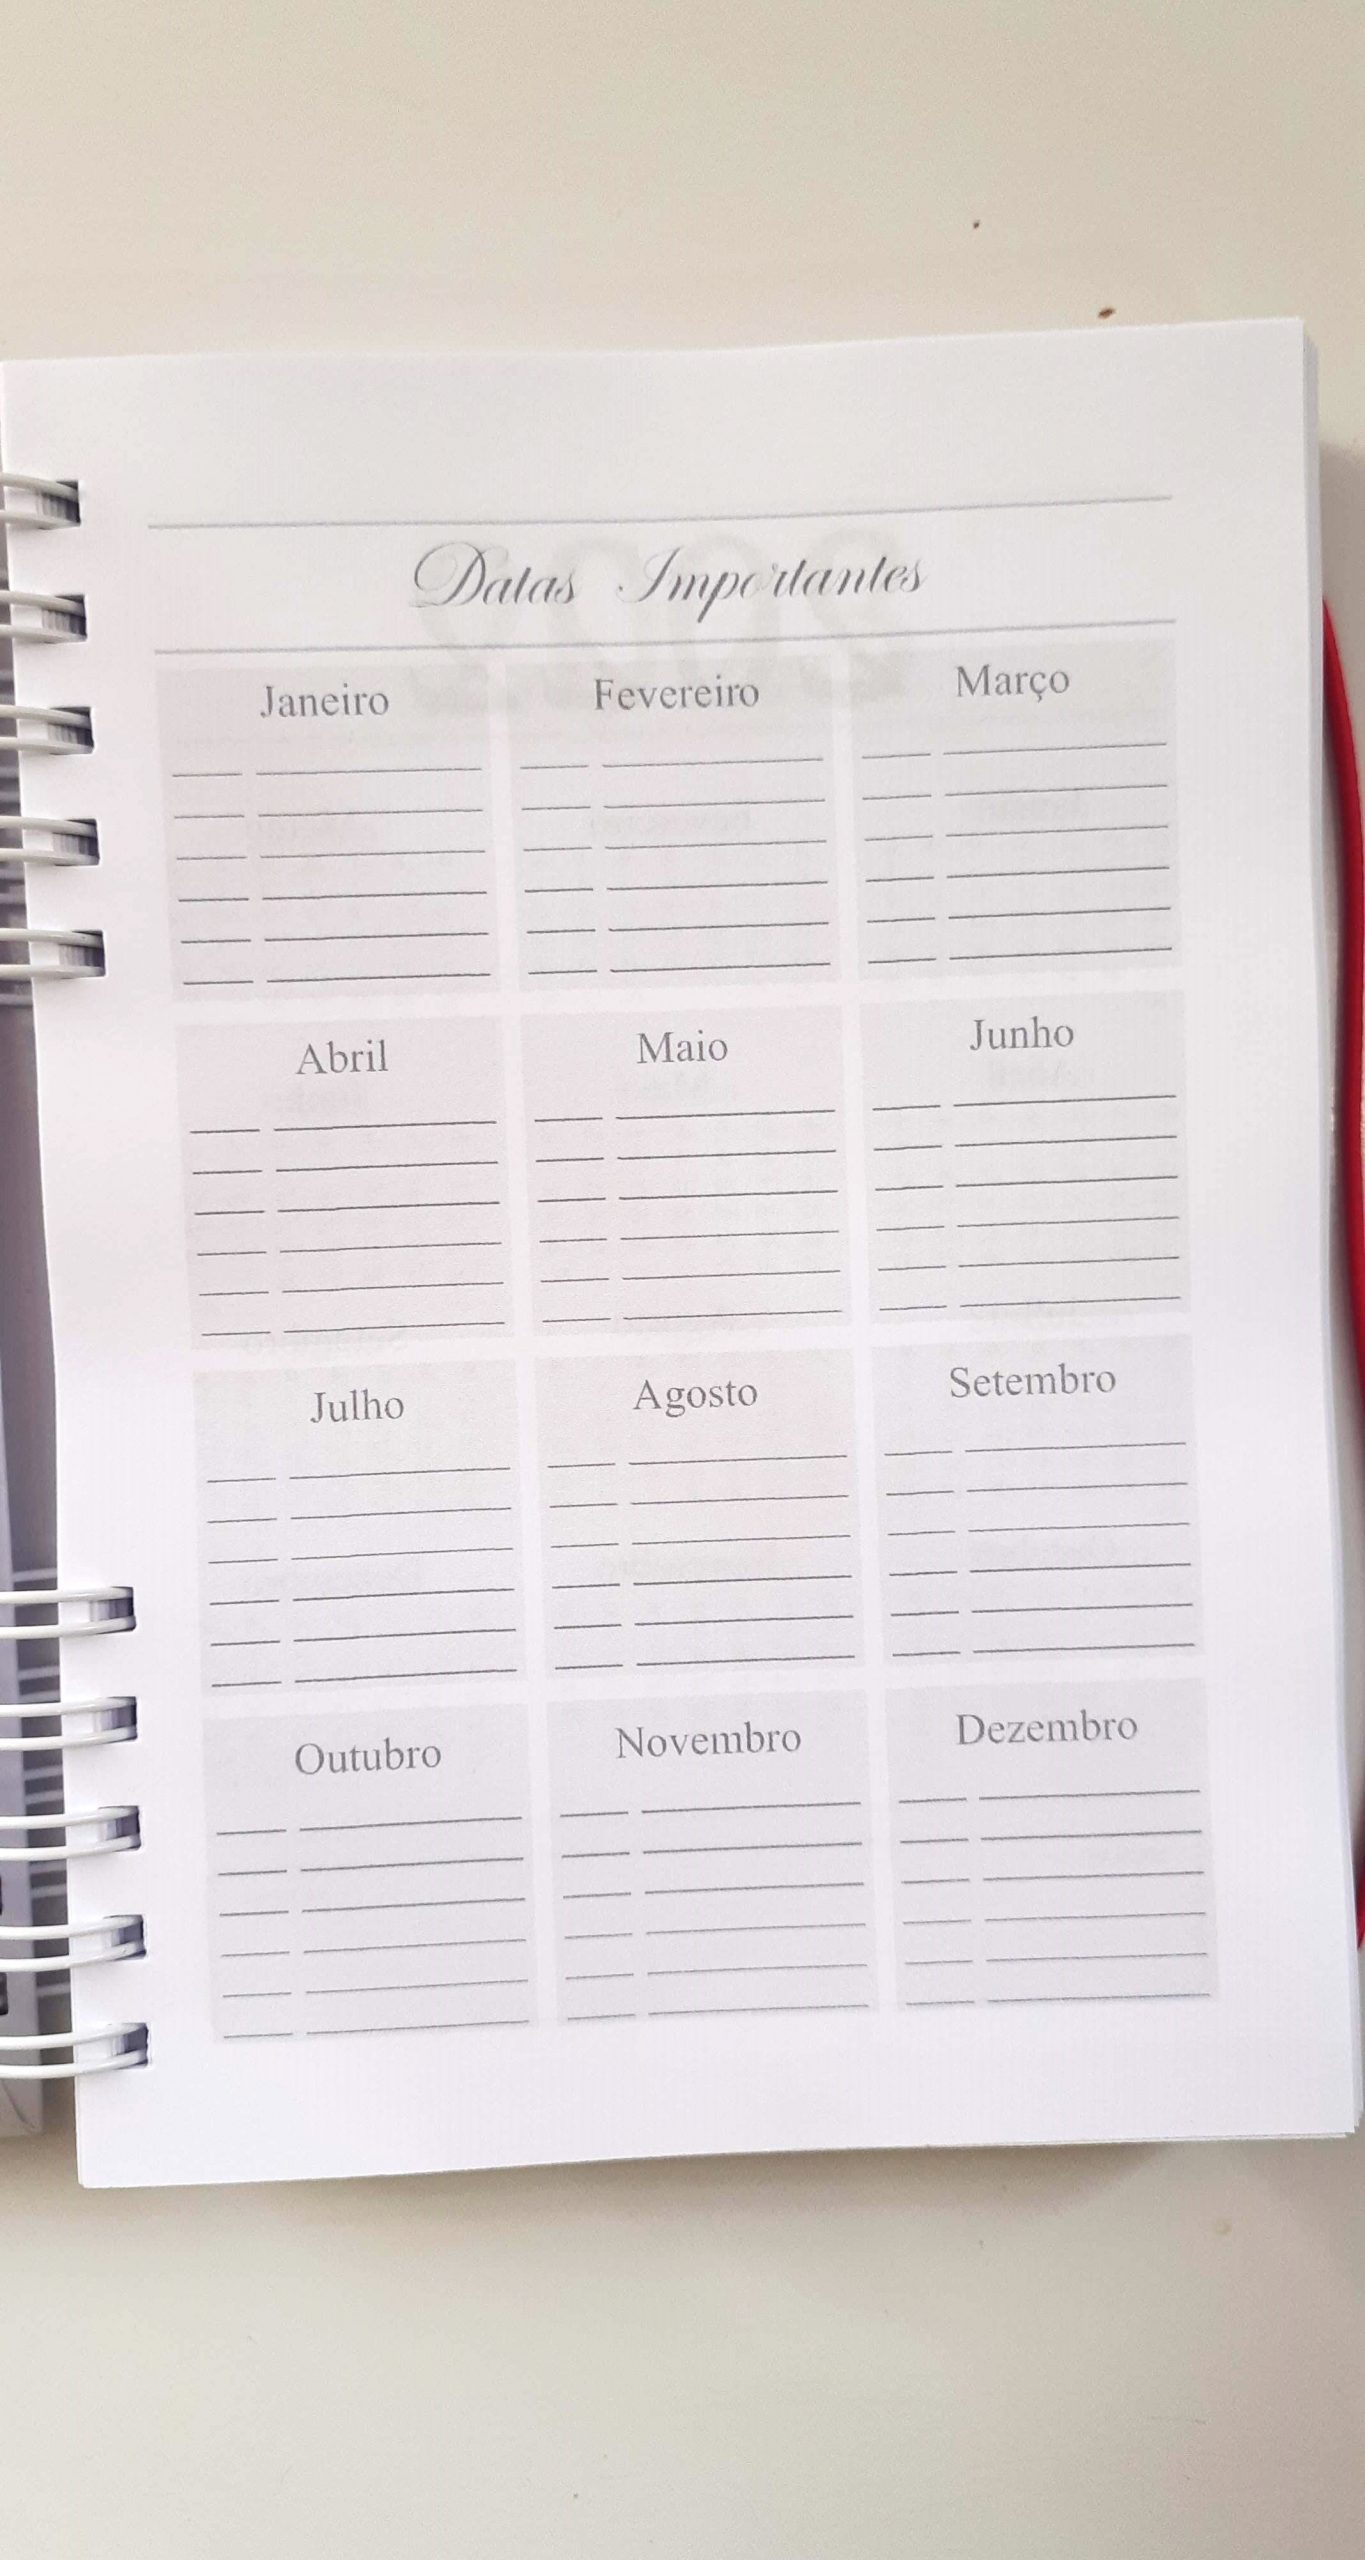 Datas Importantes
Janeiro Fevereiro Março
Abril Maio Junho
Julho Agosto Setembro
Outubro Novembro Dezembro